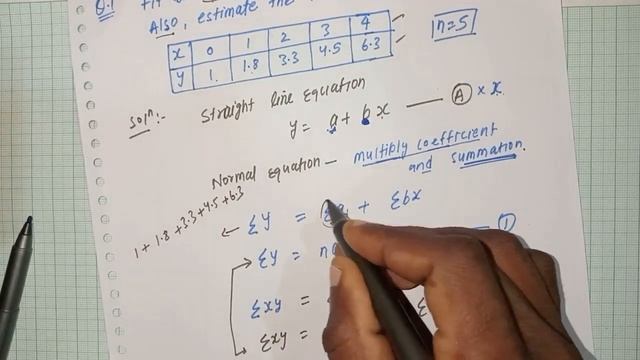 Q.1 Fit
Also, estimate the
x 0 1 2 3 4
y 1. 1.8 3.3 4.5 6.3
n=5
Solⁿ:- Straight line Equation
y = a + bx — A × x
Normal equation — multibly coefficient
and summation.
1 + 1.8 + 3.3 + 4.5 + 6.3
← Σy = Σa + Σbx
Σy = na — 1
Σxy =
Σxy =